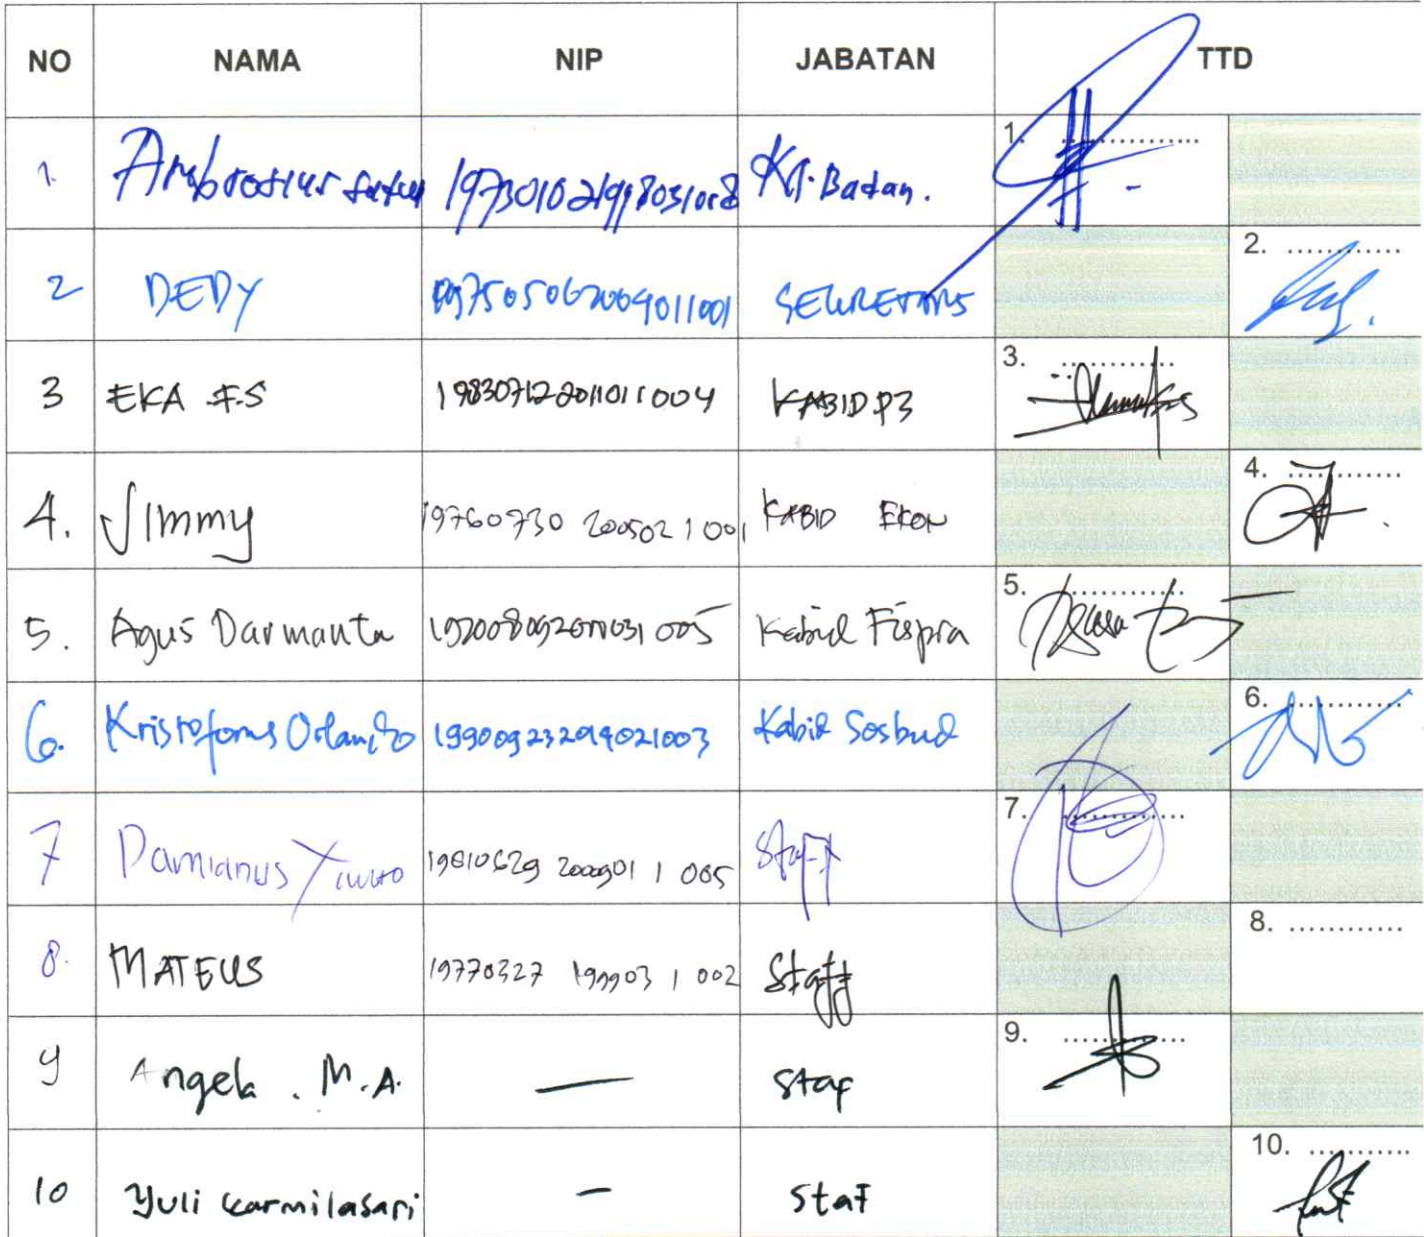 NO NAMA NIP JABATAN TTD
1. Ambrosius 197301021998031018 Ka. Badan. 1. ...............
2 DEDY 197505062009011001 SEKRETARIS 2. ............
3 EKA F.S 198307122011011004 KABID P3 3. ............
4. Jimmy 19760730 200502 1 001 KABID EKON 4. ............
5. Agus Darmanta 197008092011031 005 Kabid Fispra 5. ............
6. Kristoforus Orlando 199009232014021003 Kabid Sosbud 6. ............
7 Damianus 19810629 200901 1 005 Staff 7. ............
8. MATEUS 19770327 199903 1 002 Staff 8. ............
9 Angela . M.A. — Staf 9. ............
10 Yuli Karmilasari — Staf 10. ............